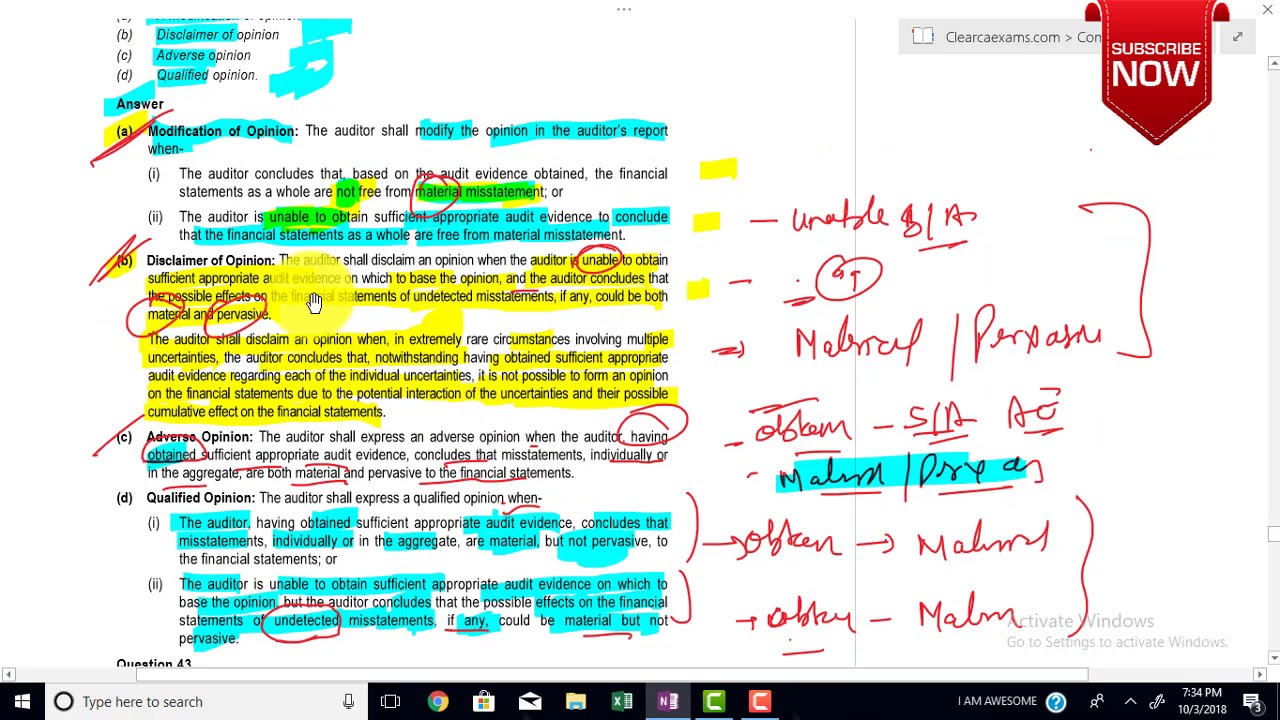 (b) Disclaimer of opinion
(c) Adverse opinion
(d) Qualified opinion.
Answer
(a) Modification of Opinion: The auditor shall modify the opinion in the auditor's report
when-
(i) The auditor concludes that, based on the audit evidence obtained, the financial
statements as a whole are not free from material misstatement; or
(ii) The auditor is unable to obtain sufficient appropriate audit evidence to conclude
that the financial statements as a whole are free from material misstatement.
(b) Disclaimer of Opinion: The auditor shall disclaim an opinion when the auditor is unable to obtain
sufficient appropriate audit evidence on which to base the opinion, and the auditor concludes that
the possible effects on the financial statements of undetected misstatements, if any, could be both
material and pervasive.
The auditor shall disclaim an opinion when, in extremely rare circumstances involving multiple
uncertainties, the auditor concludes that, notwithstanding having obtained sufficient appropriate
audit evidence regarding each of the individual uncertainties, it is not possible to form an opinion
on the financial statements due to the potential interaction of the uncertainties and their possible
cumulative effect on the financial statements.
(c) Adverse Opinion: The auditor shall express an adverse opinion when the auditor, having
obtained sufficient appropriate audit evidence, concludes that misstatements, individually or
in the aggregate, are both material and pervasive to the financial statements.
(d) Qualified Opinion: The auditor shall express a qualified opinion when-
(i) The auditor, having obtained sufficient appropriate audit evidence, concludes that
misstatements, individually or in the aggregate, are material, but not pervasive, to
the financial statements; or
(ii) The auditor is unable to obtain sufficient appropriate audit evidence on which to
base the opinion, but the auditor concludes that the possible effects on the financial
statements of undetected misstatements, if any, could be material but not
pervasive.
Question 43
Clearcaexams.com >
SUBSCRIBE
NOW
- unable S/A
Material /
S/A AE
Activate Windows
Go to Settings to activate Windows.
Type here to search
I AM AWESOME
7:34 PM
10/3/2018
3